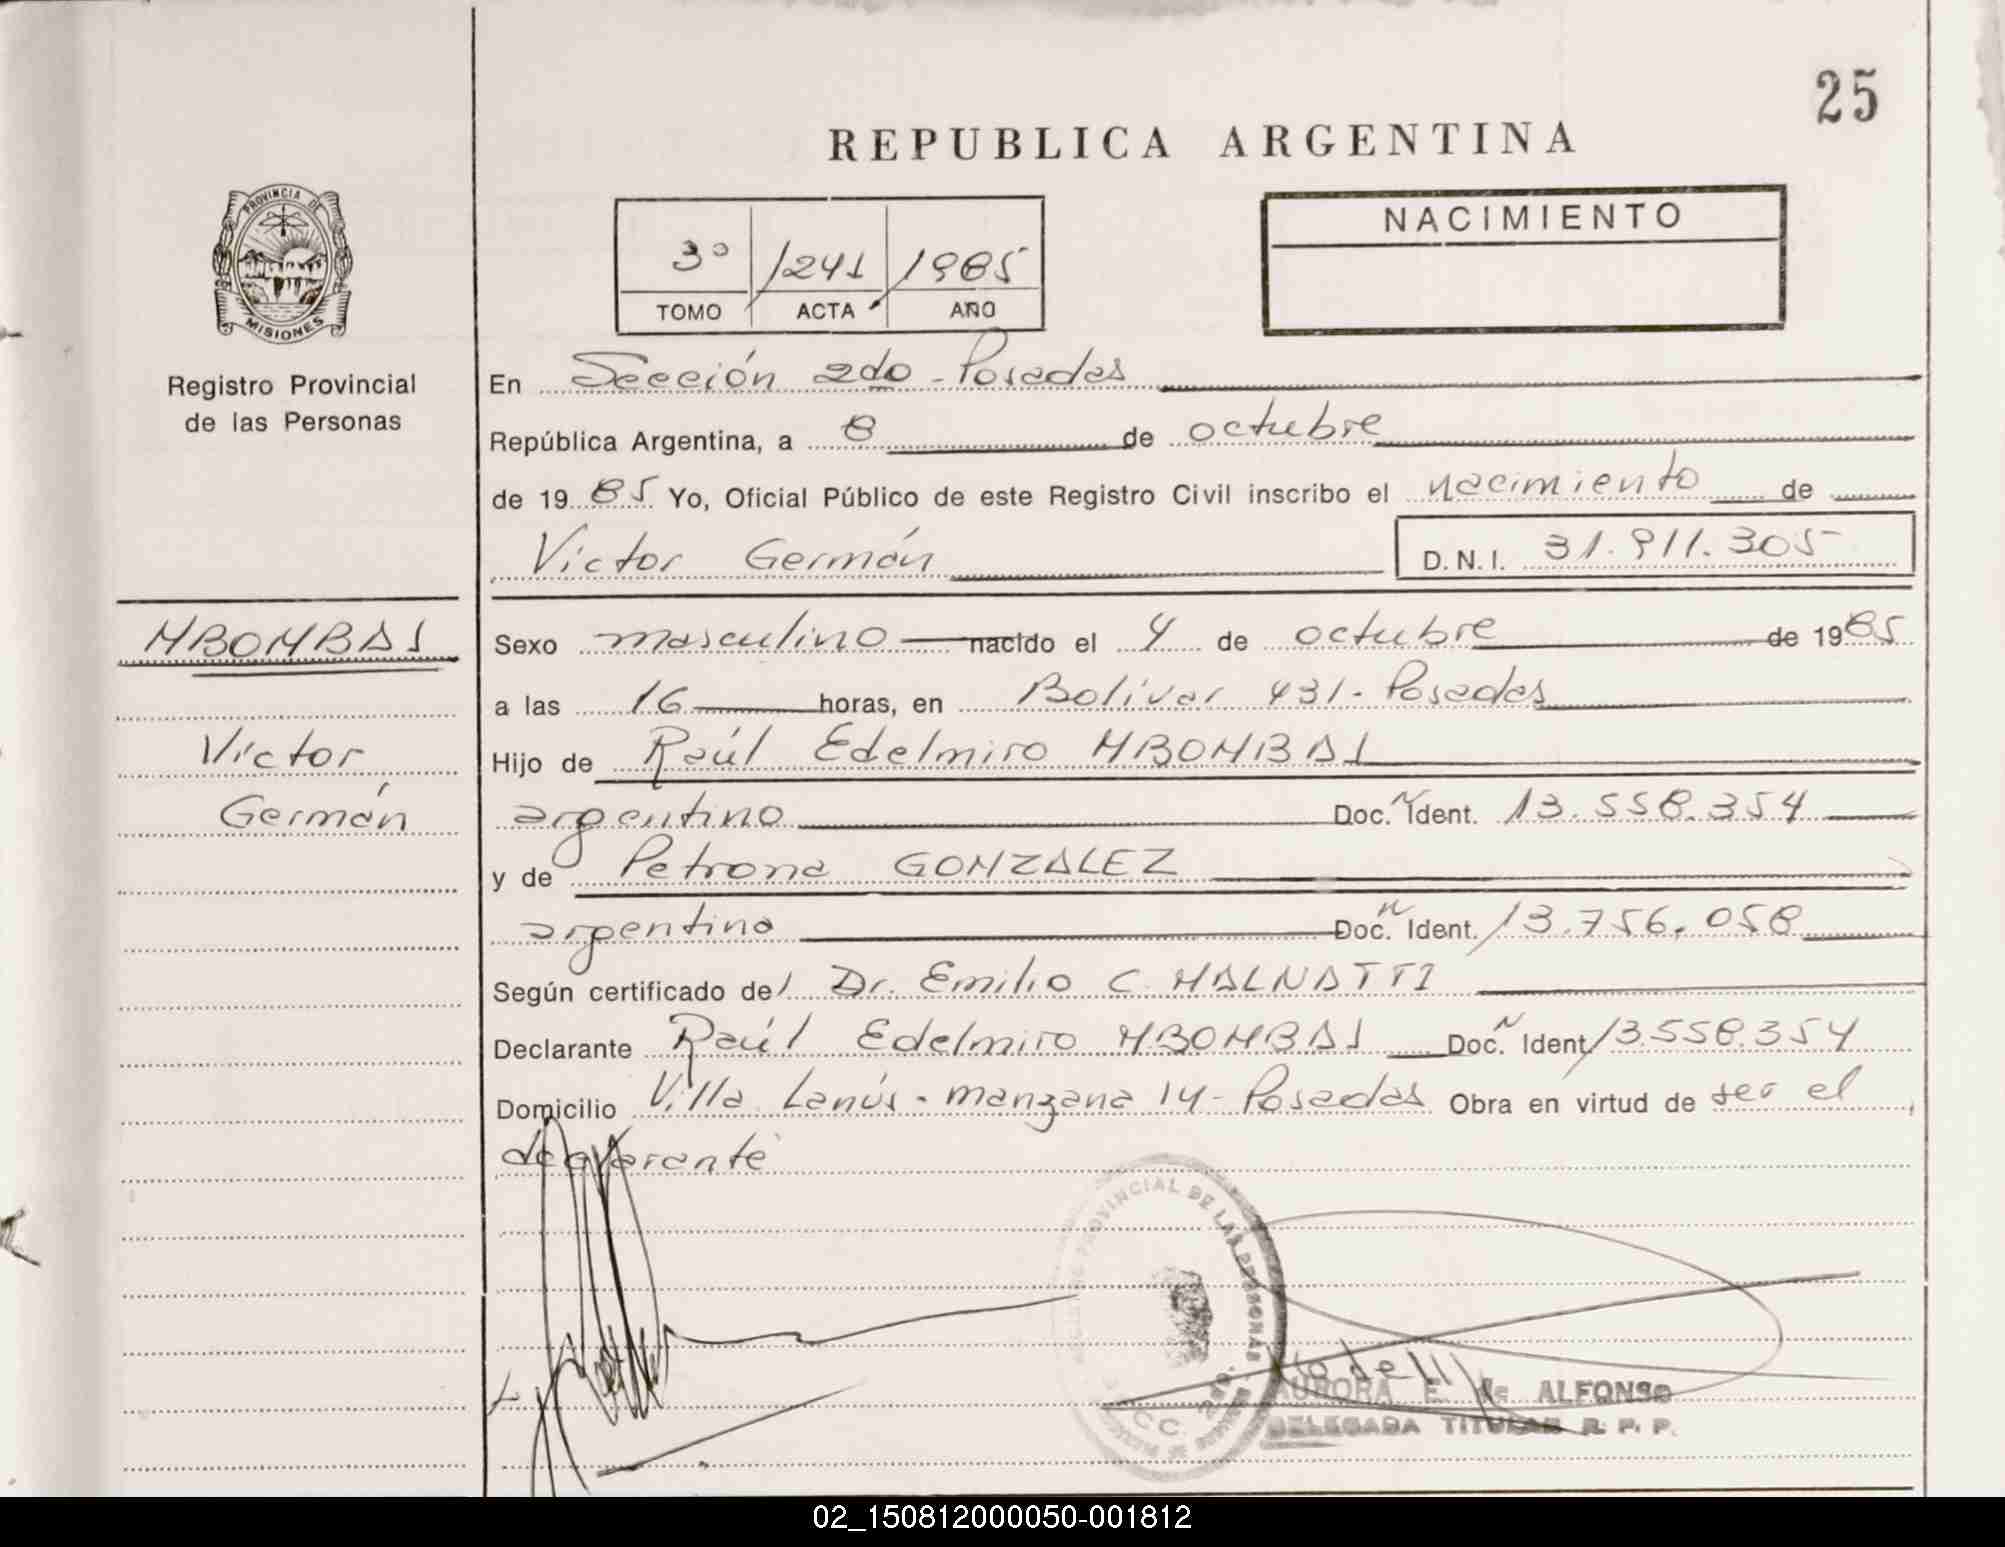 25
REPUBLICA ARGENTINA
PROVINCIA DE
MISIONES
Registro Provincial
de las Personas
3º 1241 1985
TOMO ACTA AÑO
NACIMIENTO
En Sección 2do - Posadas
República Argentina, a 8 de octubre
de 1985 Yo, Oficial Público de este Registro Civil inscribo el nacimiento de
Víctor Germán D.N.I. 31.911.305
MBOMBAJ
Víctor
Germán
Sexo masculino nacido el 4 de octubre de 1985
a las 16 horas, en Bolívar 431 - Posadas
Hijo de Raúl Edelmiro MBOMBAJ
argentino Doc. N Ident. 13.558.354
y de Petrona GONZALEZ
argentina Doc. N Ident. 13.756.058
Según certificado del Dr. Emilio C. MALNATTI
Declarante Raúl Edelmiro MBOMBAJ Doc. N Ident 13.558.354
Domicilio Villa Lanús - manzana 14 - Posadas Obra en virtud de ser el
declarante
PROVINCIAL DE LAS PERSONAS
AURORA E. de ALFONSO
DELEGADA TITULAR R. P. P.
02_150812000050-001812